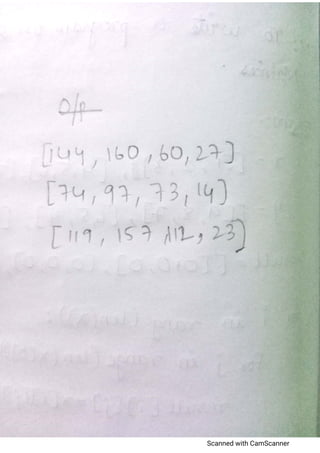 O/P
[144, 160, 60, 27]
[74, 97, 73, 14]
[119, 157, 112, 23]
Scanned with CamScanner